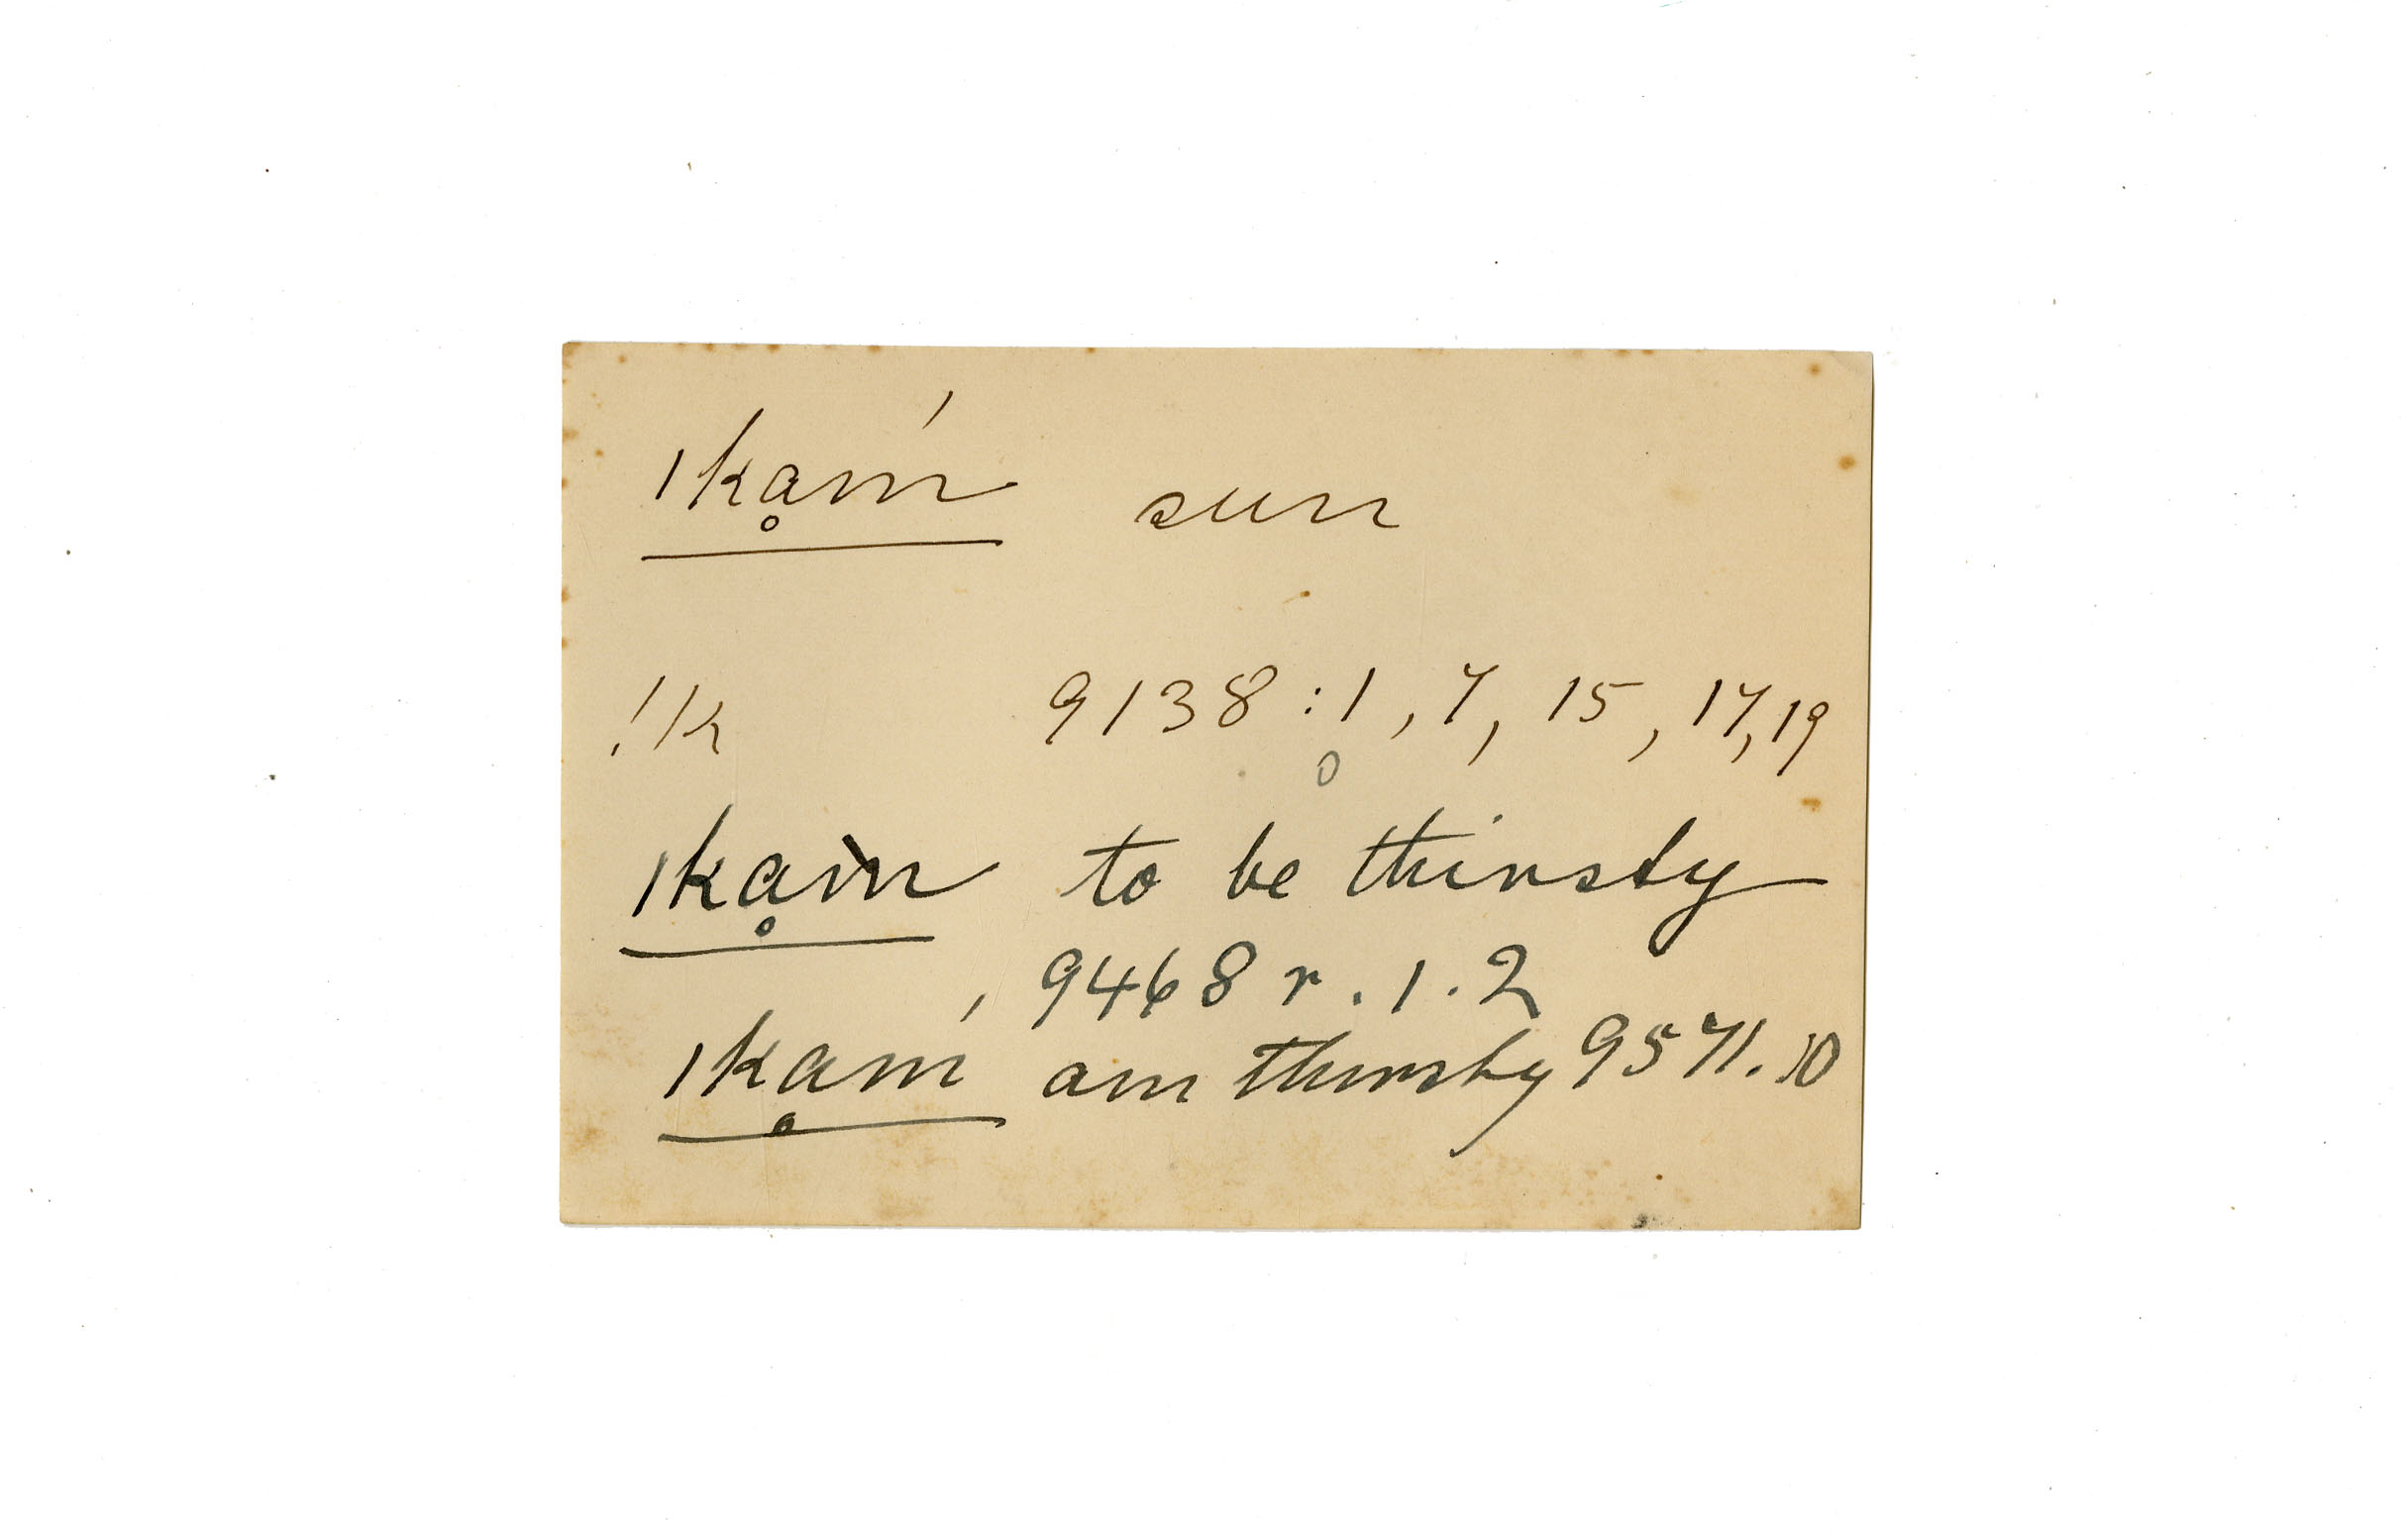 ǀkḁḿ sun
!ǀk 9138 : 1, 7, 15, 17, 19
0
ǀkḁm̀ to be thirsty
9468 r. 1. 2
ǀkḁḿ am thirsty 9571. 10